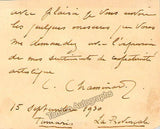 avec plaisir je vous envoie
les quelques mesures que vous
me demandez avec l'expression
de mes sentiments de
artistique
C. Chaminade
15 Septembre 1930
Tamaris La